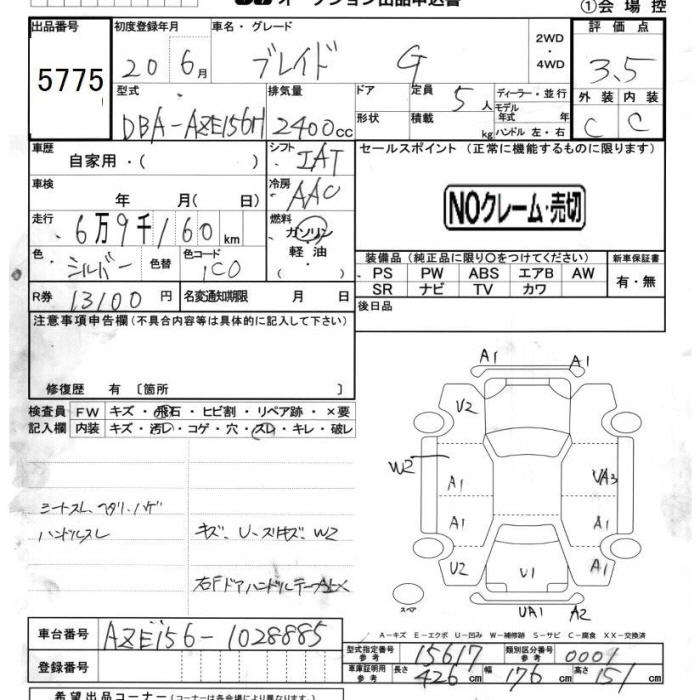 オークション出品申込書
①会場控
出品番号
5775
初度登録年月
20 6月
車名・グレード
ブレイド G
2WD
・
4WD
評価点
3.5
型式
DBA-AZE156H
排気量
2400cc
ドア
形状
定員 5人
積載 kg
ディーラー・並行
モデル年式 年
ハンドル 左・右
外装 内装
C C
車歴
自家用・( )
シフト
IAT
セールスポイント (正常に機能するものに限ります)
NOクレーム・売切
車検
年 月( 日)
冷房
AAC
走行
6万9千160km
燃料
ガソリン
軽油
( ・ )
色
シルバー
色替
色コード
1C0
装備品 (純正品に限り〇をつけてください)
PS PW ABS エアB AW
SR ナビ TV カワ
新車保証書
有・無
R券 13100円
名変通知期限 月 日
後日品
注意事項申告欄(不具合内容等は具体的に記入して下さい)
修復歴 有 〔箇所 〕
検査員記入欄
FW キズ・飛石・ヒビ割・リペア跡・×要
内装 キズ・汚レ・コゲ・穴・スレ・キレ・破レ
シートスレ、ヘタリ、ハゲ
ハンドルスレ
キズ、U、スリキズ、W2
右Fドアハンドルテープ
A1 A1
U2
W2
A1 UA3
A1 A1
U2 U1 A1
UA1 A2
スペア
A-キズ E-エクボ U-凹み W-補修跡 S-サビ C-腐食 XX-交換済
車台番号
AZE156-1028885
登録番号
型式指定番号 参考 15617
類別区分番号 参考 0004
車庫証明用 参考 長さ 426cm 幅 176cm 高さ 151cm
希望出品コーナー